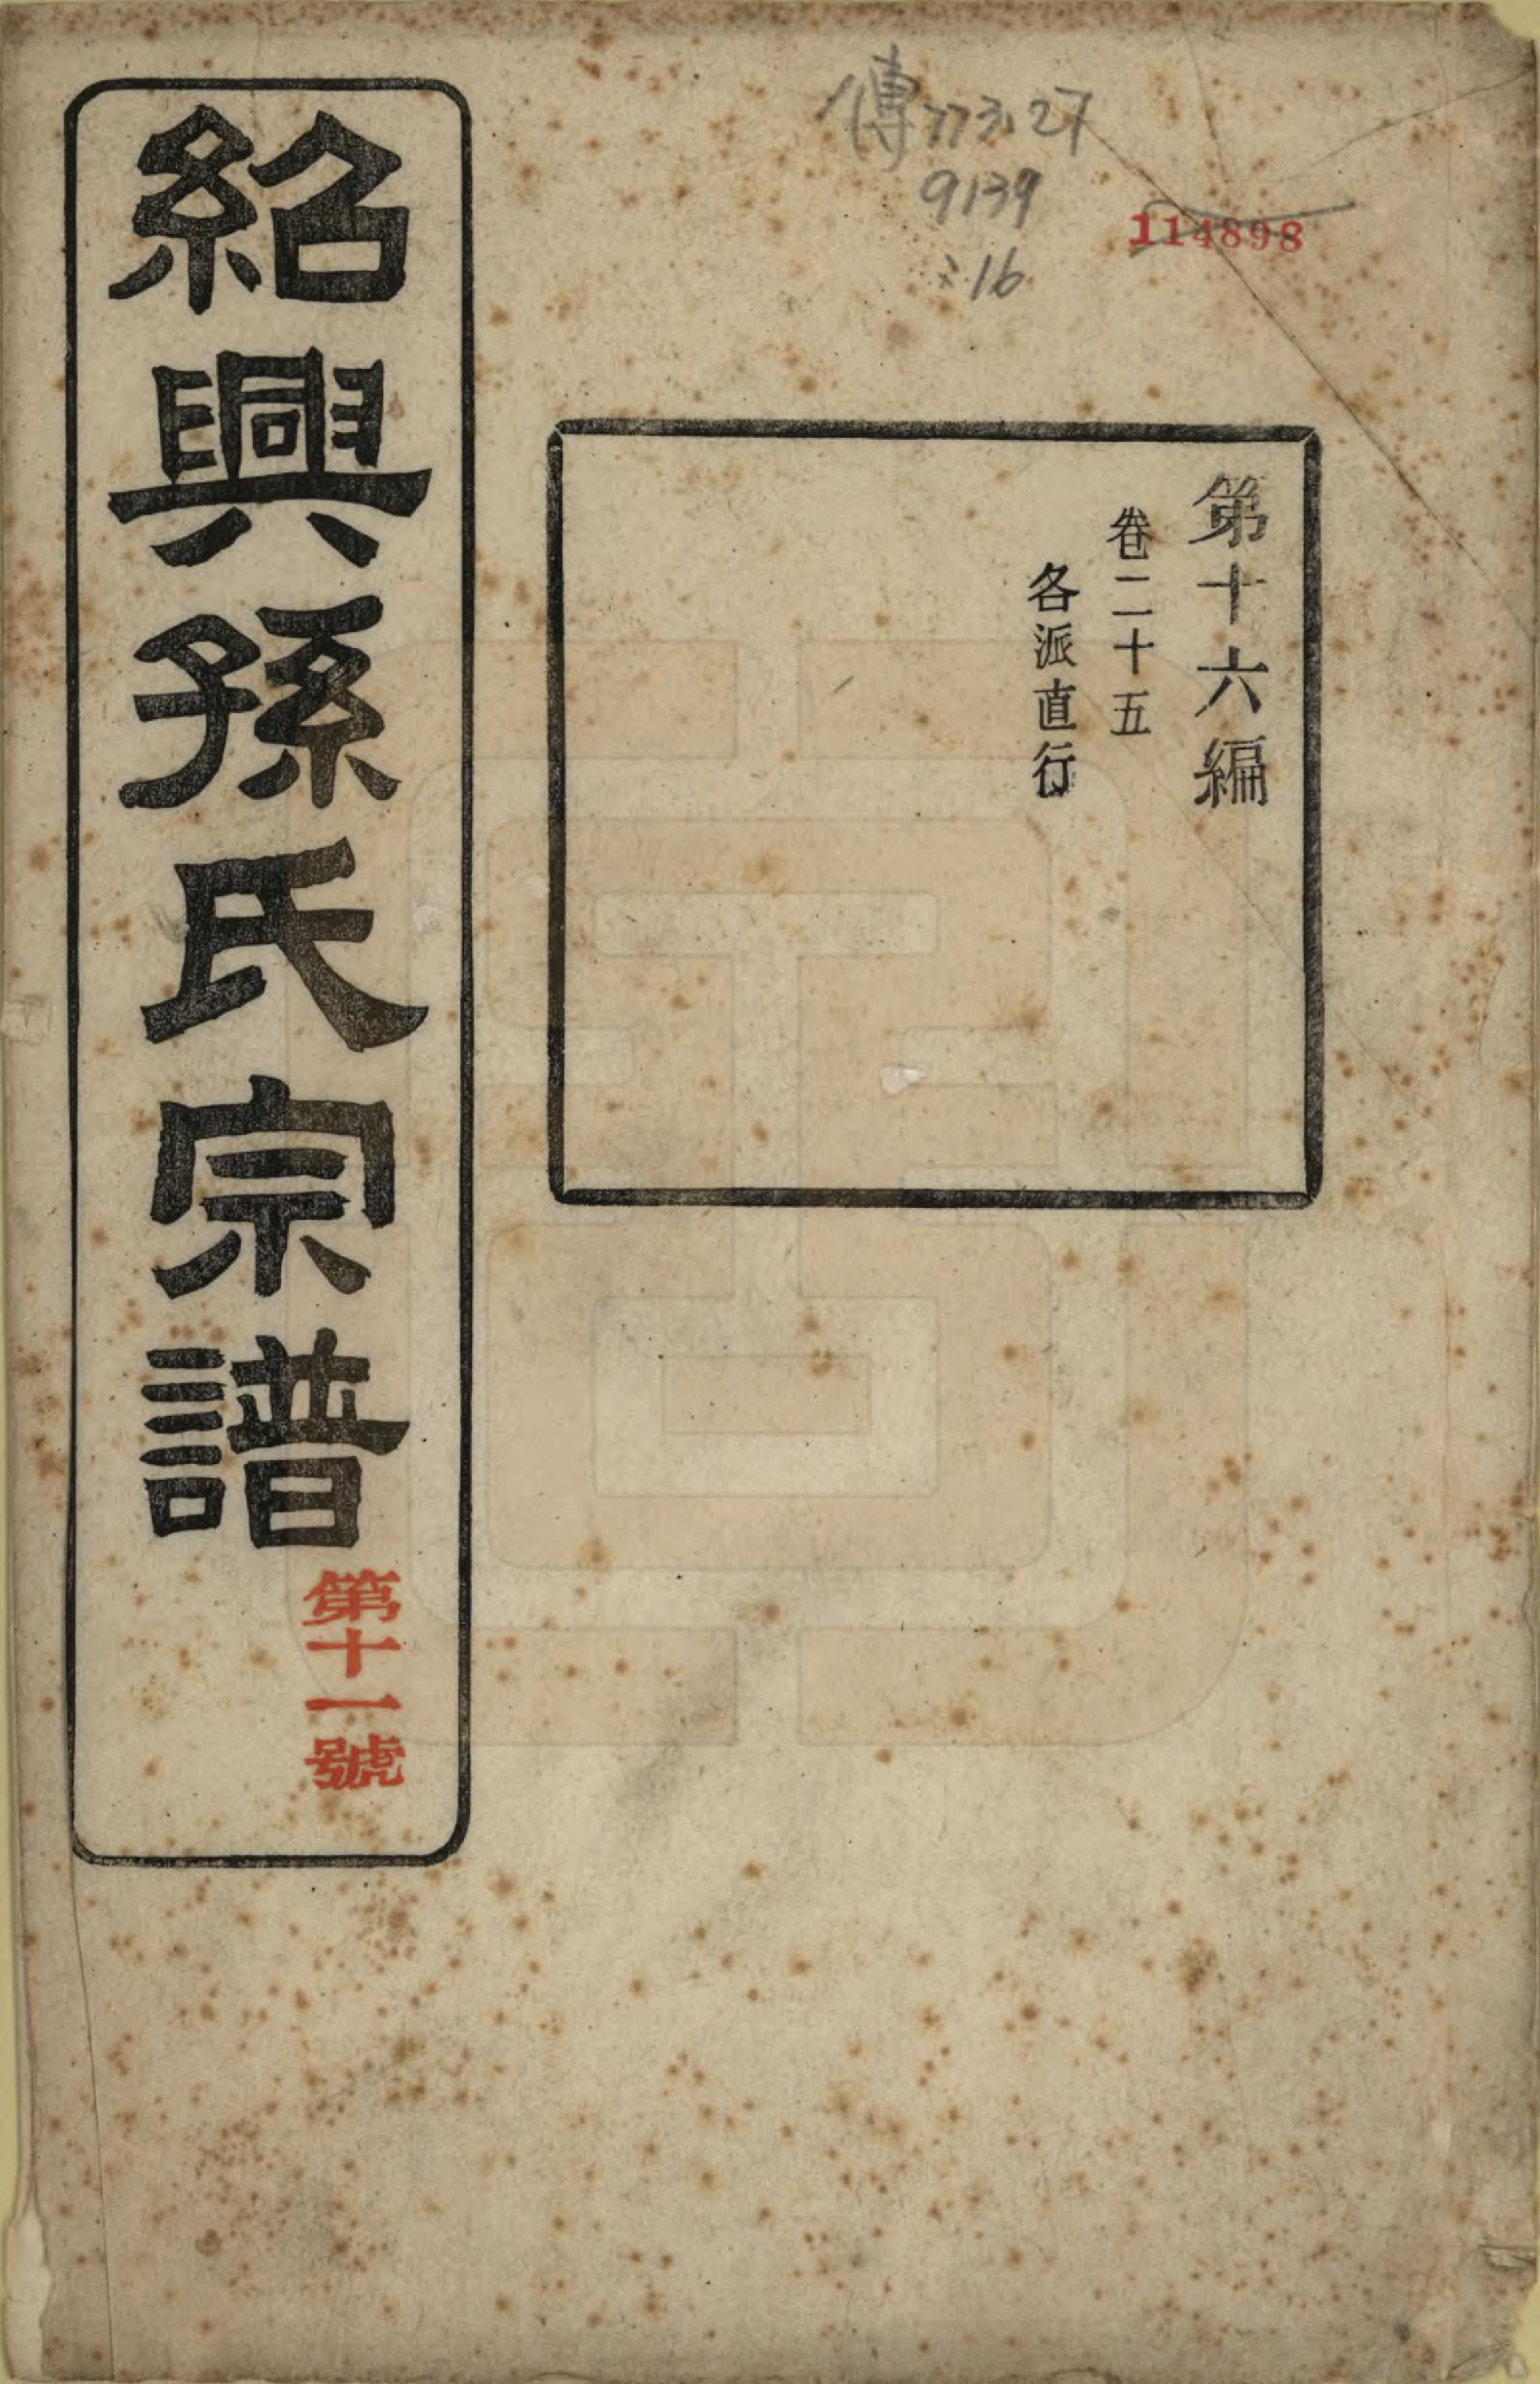 傳773.27
9139
:16
114898
第十六編
卷二十五
各派直行
紹興孫氏宗譜
第十一號